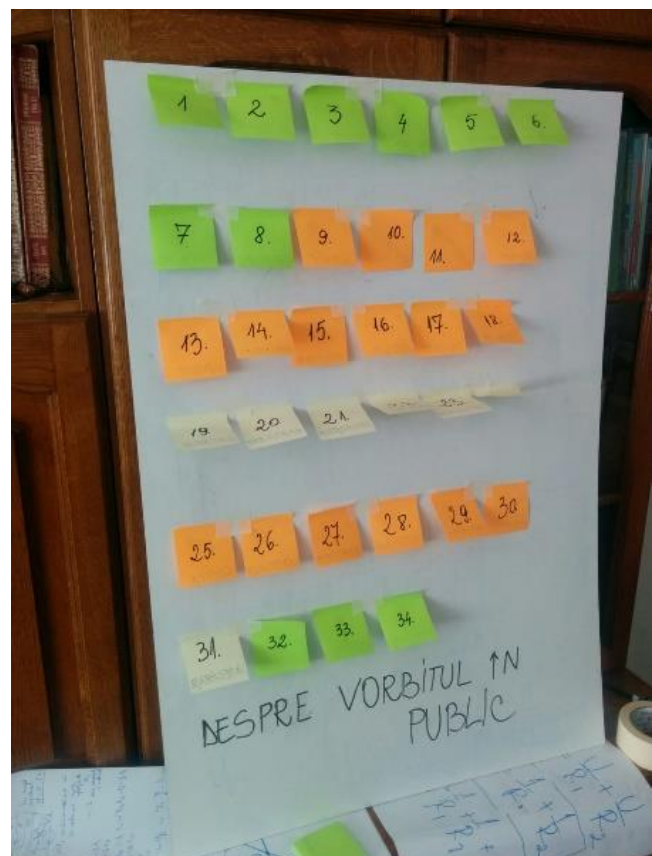 1 2 3 4 5 6.
7 8. 9. 10. 11. 12.
13. 14. 15. 16. 17. 18.
19. 20. 21. 23.
25. 26. 27. 28. 29. 30
31. 32. 33. 34.
DESPRE VORBITUL ÎN
PUBLIC